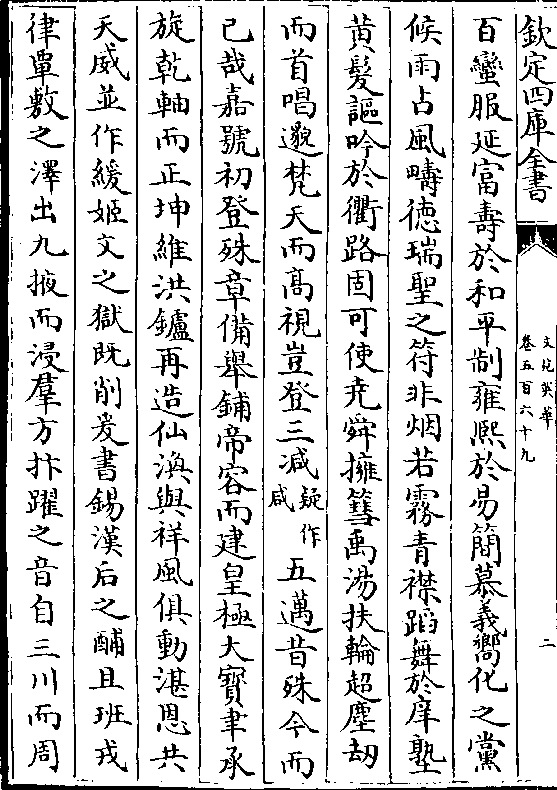 欽定四庫全書
文苑英華
卷五百六十九
二
百蠻服延富壽於和平制雍熈於易簡慕義嚮化之黨
候雨占風疇徳瑞聖之符非烟若霧青襟蹈舞於庠塾
黄髮謳吟於衢路固可使尭舜擁篲禹湯扶輪超塵劫
而首唱邈梵天而髙視豈登三減疑作咸五邁昔殊今而
已哉嘉號初登殊章備舉鋪帝容而建皇極大寳聿承
旋乾軸而正坤維洪鑪再造仙渙與祥風俱動湛恩共
天威並作緩姬文之獄既削爰書錫漢后之酺且班戎
律覃敷之澤出九掖而浸羣方抃躍之音自三川而周